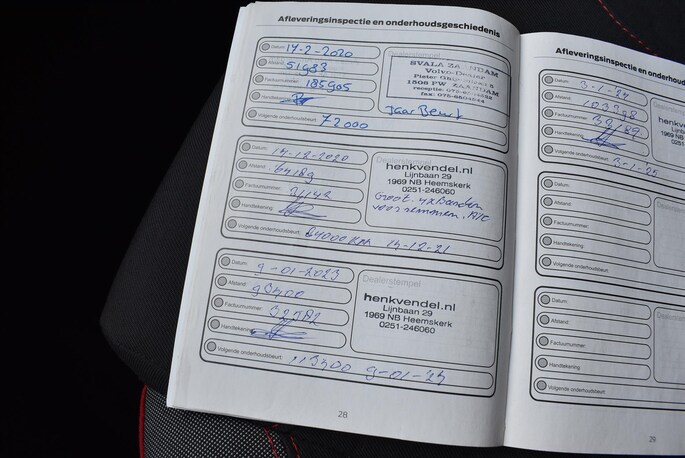 Afleveringsinspectie en onderhoudsgeschiedenis
Datum: 14-2-2020
Afstand: 51983
Factuurnummer: 185905
Handtekening:
Volgende onderhoudsbeurt: 72000
Dealerstempel
SVALA ZAANDAM
Volvo-Dealer
1506 PW ZAANDAM
Jaar Beurt
Datum: 14-12-2020
Afstand: 64189
Factuurnummer:
Handtekening:
Volgende onderhoudsbeurt: 84000 km 14-12-21
henkvendel.nl
Lijnbaan 29
1969 NB Heemskerk
0251-246060
Groot. 4xBanden
voorremmen.
Datum: 9-01-2023
Afstand: 93400
Factuurnummer:
Handtekening:
Volgende onderhoudsbeurt: 9-01-
Dealerstempel
henkvendel.nl
Lijnbaan 29
1969 NB Heemskerk
0251-246060
28
Afleveringsinspectie en onderhoud
Datum: 3-1-24
Afstand:
Factuurnummer:
Handtekening:
Volgende onderhoudsbeurt: 3-1-25
Dealerstempel
henkv
Lijnb
1969 NB
0251-
Datum:
Afstand:
Factuurnummer:
Handtekening:
Volgende onderhoudsbeurt:
Dealers
Datum:
Afstand:
Factuurnummer:
Handtekening:
Volgende onderhoudsbeurt:
Dealer
29